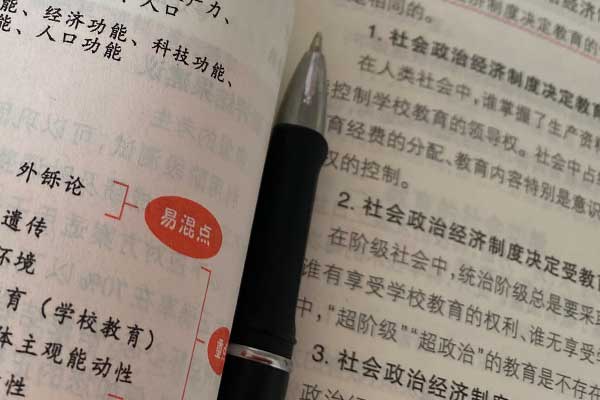 能、经济功能、科技功能、
人口功能
外铄论
遗传
易混点
环境
育（学校教育）
体主观能动性
性
是相同的。
1. 社会政治经济制度决定教育
在人类社会中，谁掌握了生产资料
控制学校教育的领导权。社会中占统
育经费的分配、教育内容特别是意识
权的控制。
2. 社会政治经济制度决定受教育
在阶级社会中，统治阶级总是要采取
谁有享受学校教育的权利、谁无享受学
中，“超阶级”“超政治”的教育是不存在
3. 社会政治经济制度